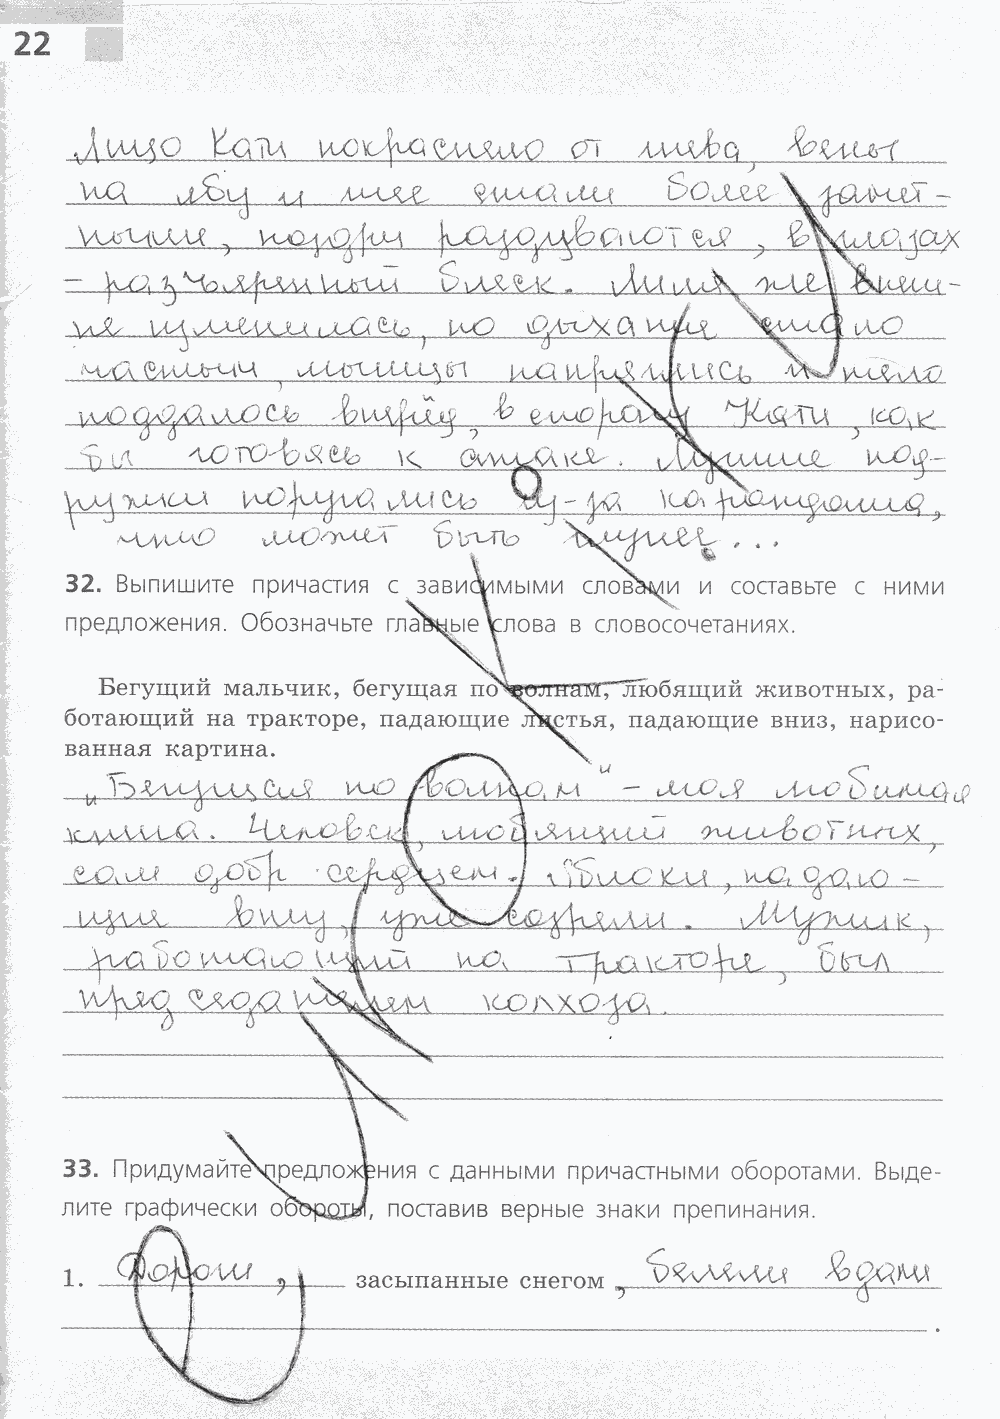 22
Лицо Кати покраснело от гнева, вены
на лбу и шее стали более замет-
ными, ноздри раздуваются, в глазах
– разъяренный блеск. Лиля же внеш-
не изменилась, но дыхание стало
частым, мышцы напряглись и тело
поддалось вперёд, в сторону Кати, как
бы готовясь к атаке. Лучшие под-
ружки поругались из-за карандаша,
что может быть глупее...
32. Выпишите причастия с зависимыми словами и составьте с ними
предложения. Обозначьте главные слова в словосочетаниях.
Бегущий мальчик, бегущая по волнам, любящий животных, ра-
ботающий на тракторе, падающие листья, падающие вниз, нарисо-
ванная картина.
„Бегущая по волнам" – моя любимая
книга. Человек, любящий животных,
сам добр сердцем. Яблоки, падаю-
щие вниз, уже созрели. Мужик,
работающий на тракторе, был
председателем колхоза.
33. Придумайте предложения с данными причастными оборотами. Выде-
лите графически обороты, поставив верные знаки препинания.
1. Дороги, засыпанные снегом, белели вдали
.